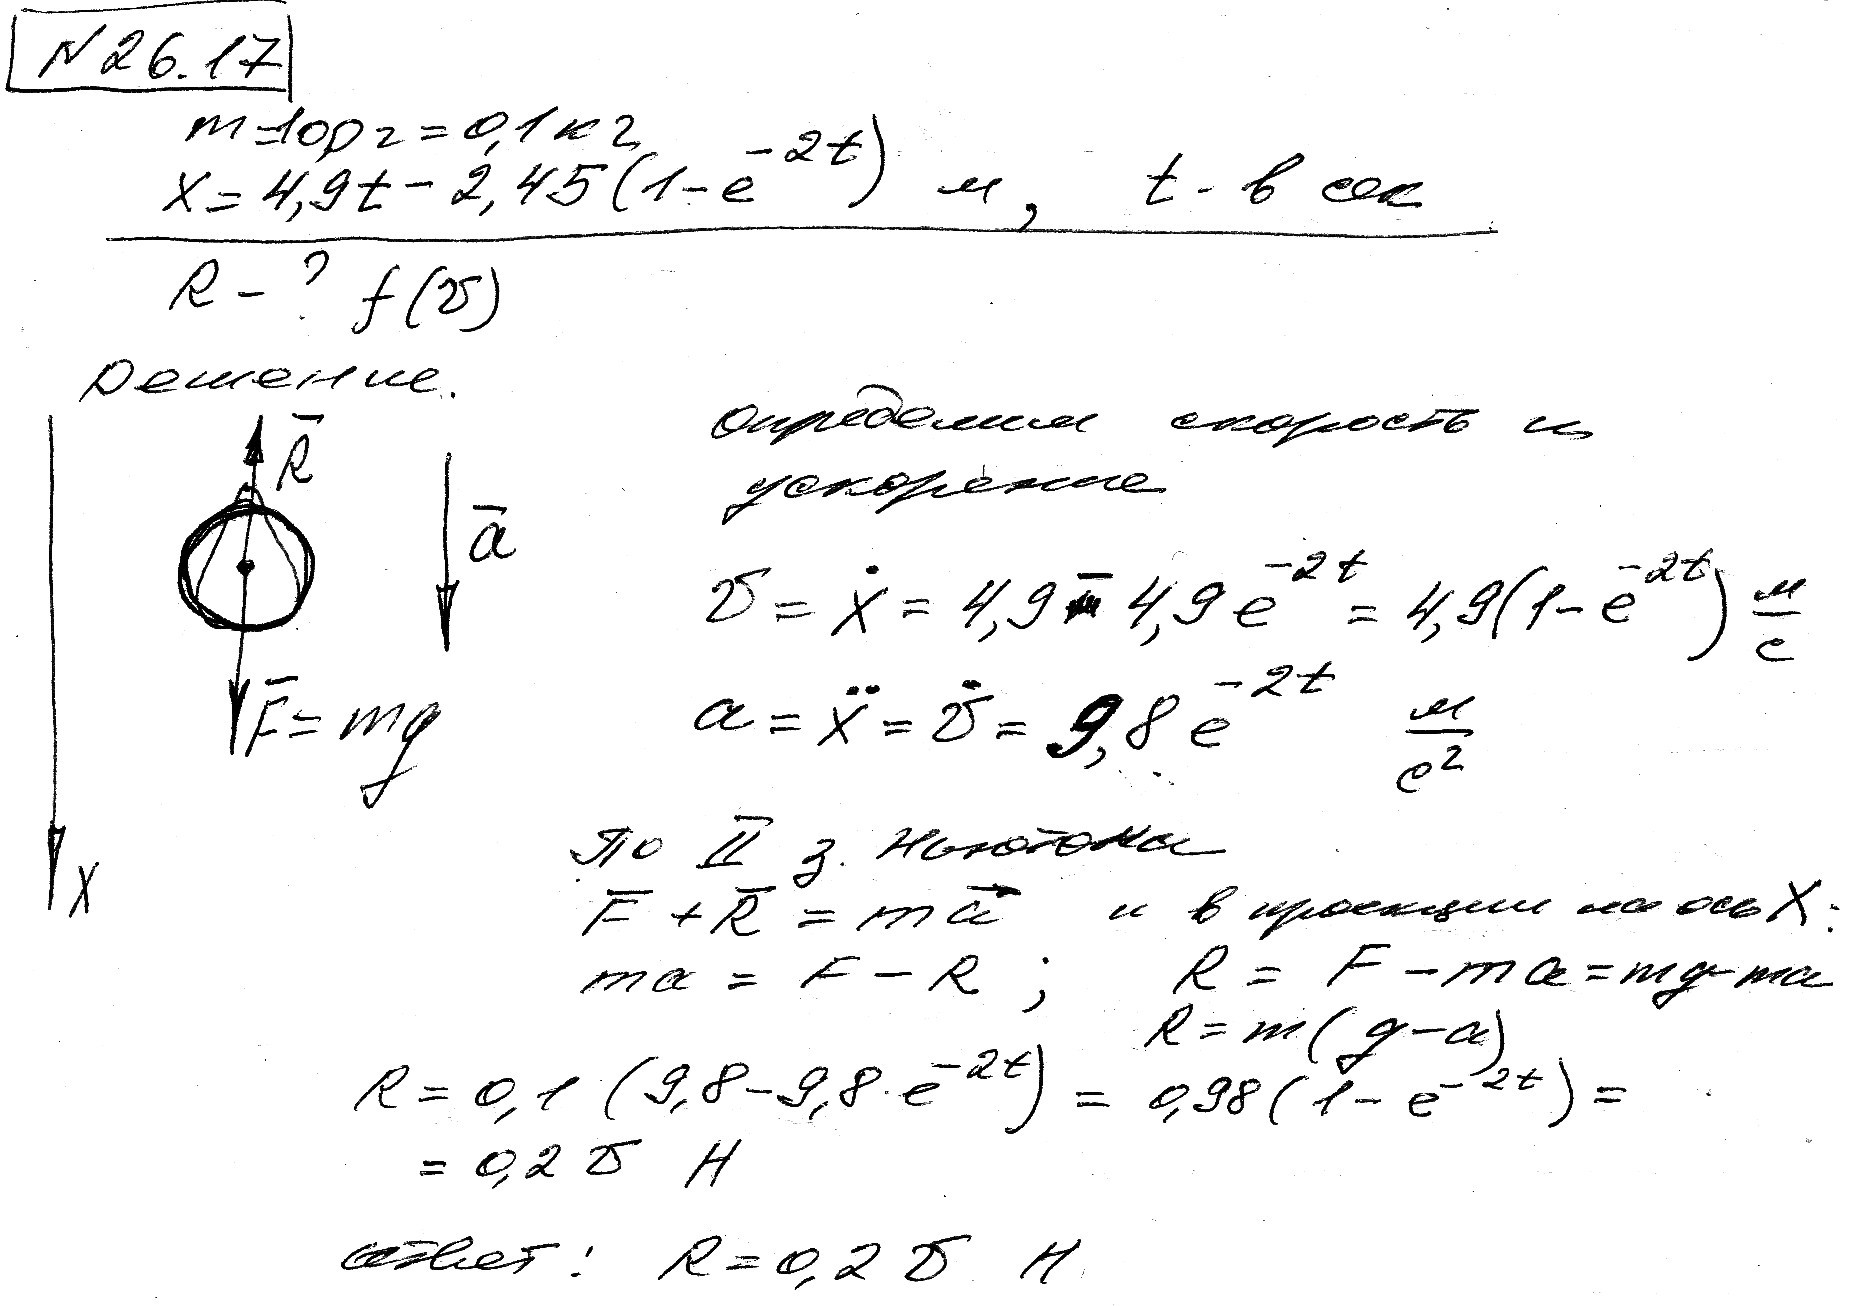 N 26.17
m=100 г = 0,1 кг
x = 4,9t - 2,45(1-e^{-2t}) м, t - в сек
R - ? f(v)
Решение.
R̅
a̅
F̅ = mg
X
определим скорость и
ускорение
v = ẋ = 4,9 - 4,9e^{-2t} = 4,9(1-e^{-2t}) м/с
a = ẍ = v̇ = 9,8e^{-2t} м/с²
По II з. Ньютона
F̅ + R̅ = ma⃗ и в проекции на ось X:
ma = F - R ; R = F - ma = mg - ma
R = m(g-a)
R = 0,1 (9,8-9,8·e^{-2t}) = 0,98(1-e^{-2t}) =
= 0,2 v Н
ответ: R = 0,2 v Н